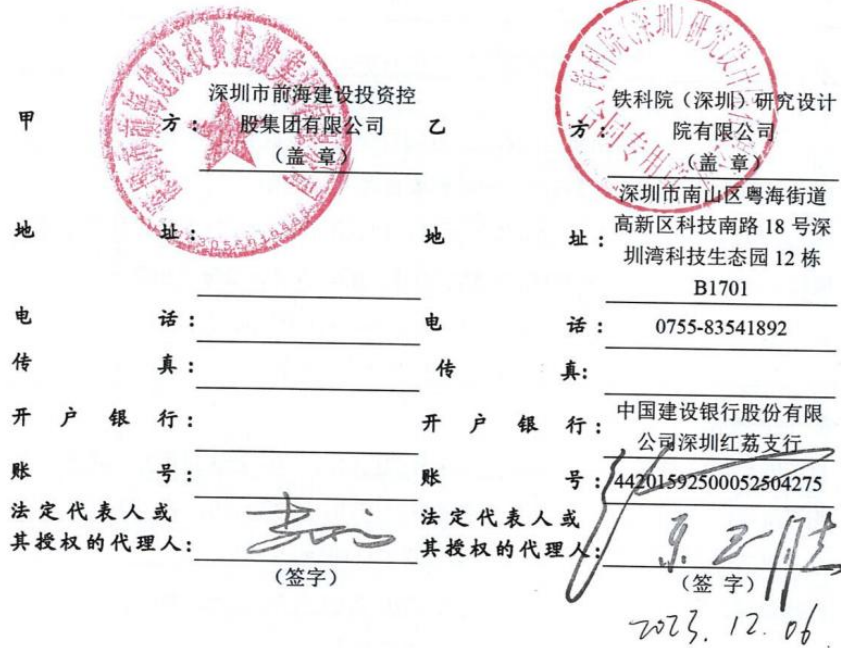 甲 方：深圳市前海建设投资控
股集团有限公司
（盖 章）
地 址：
电 话：
传 真：
开 户 银 行：
账 号：
法定代表人或
其授权的代理人：
（签字）
乙 方：铁科院（深圳）研究设计
院有限公司
（盖 章）
地 址：深圳市南山区粤海街道
高新区科技南路 18 号深
圳湾科技生态园 12 栋
B1701
电 话：0755-83541892
传 真:
开 户 银 行：中国建设银行股份有限
公司深圳红荔支行
账 号：44201592500052504275
法定代表人或
其授权的代理人:
（签 字）
2023. 12. 06